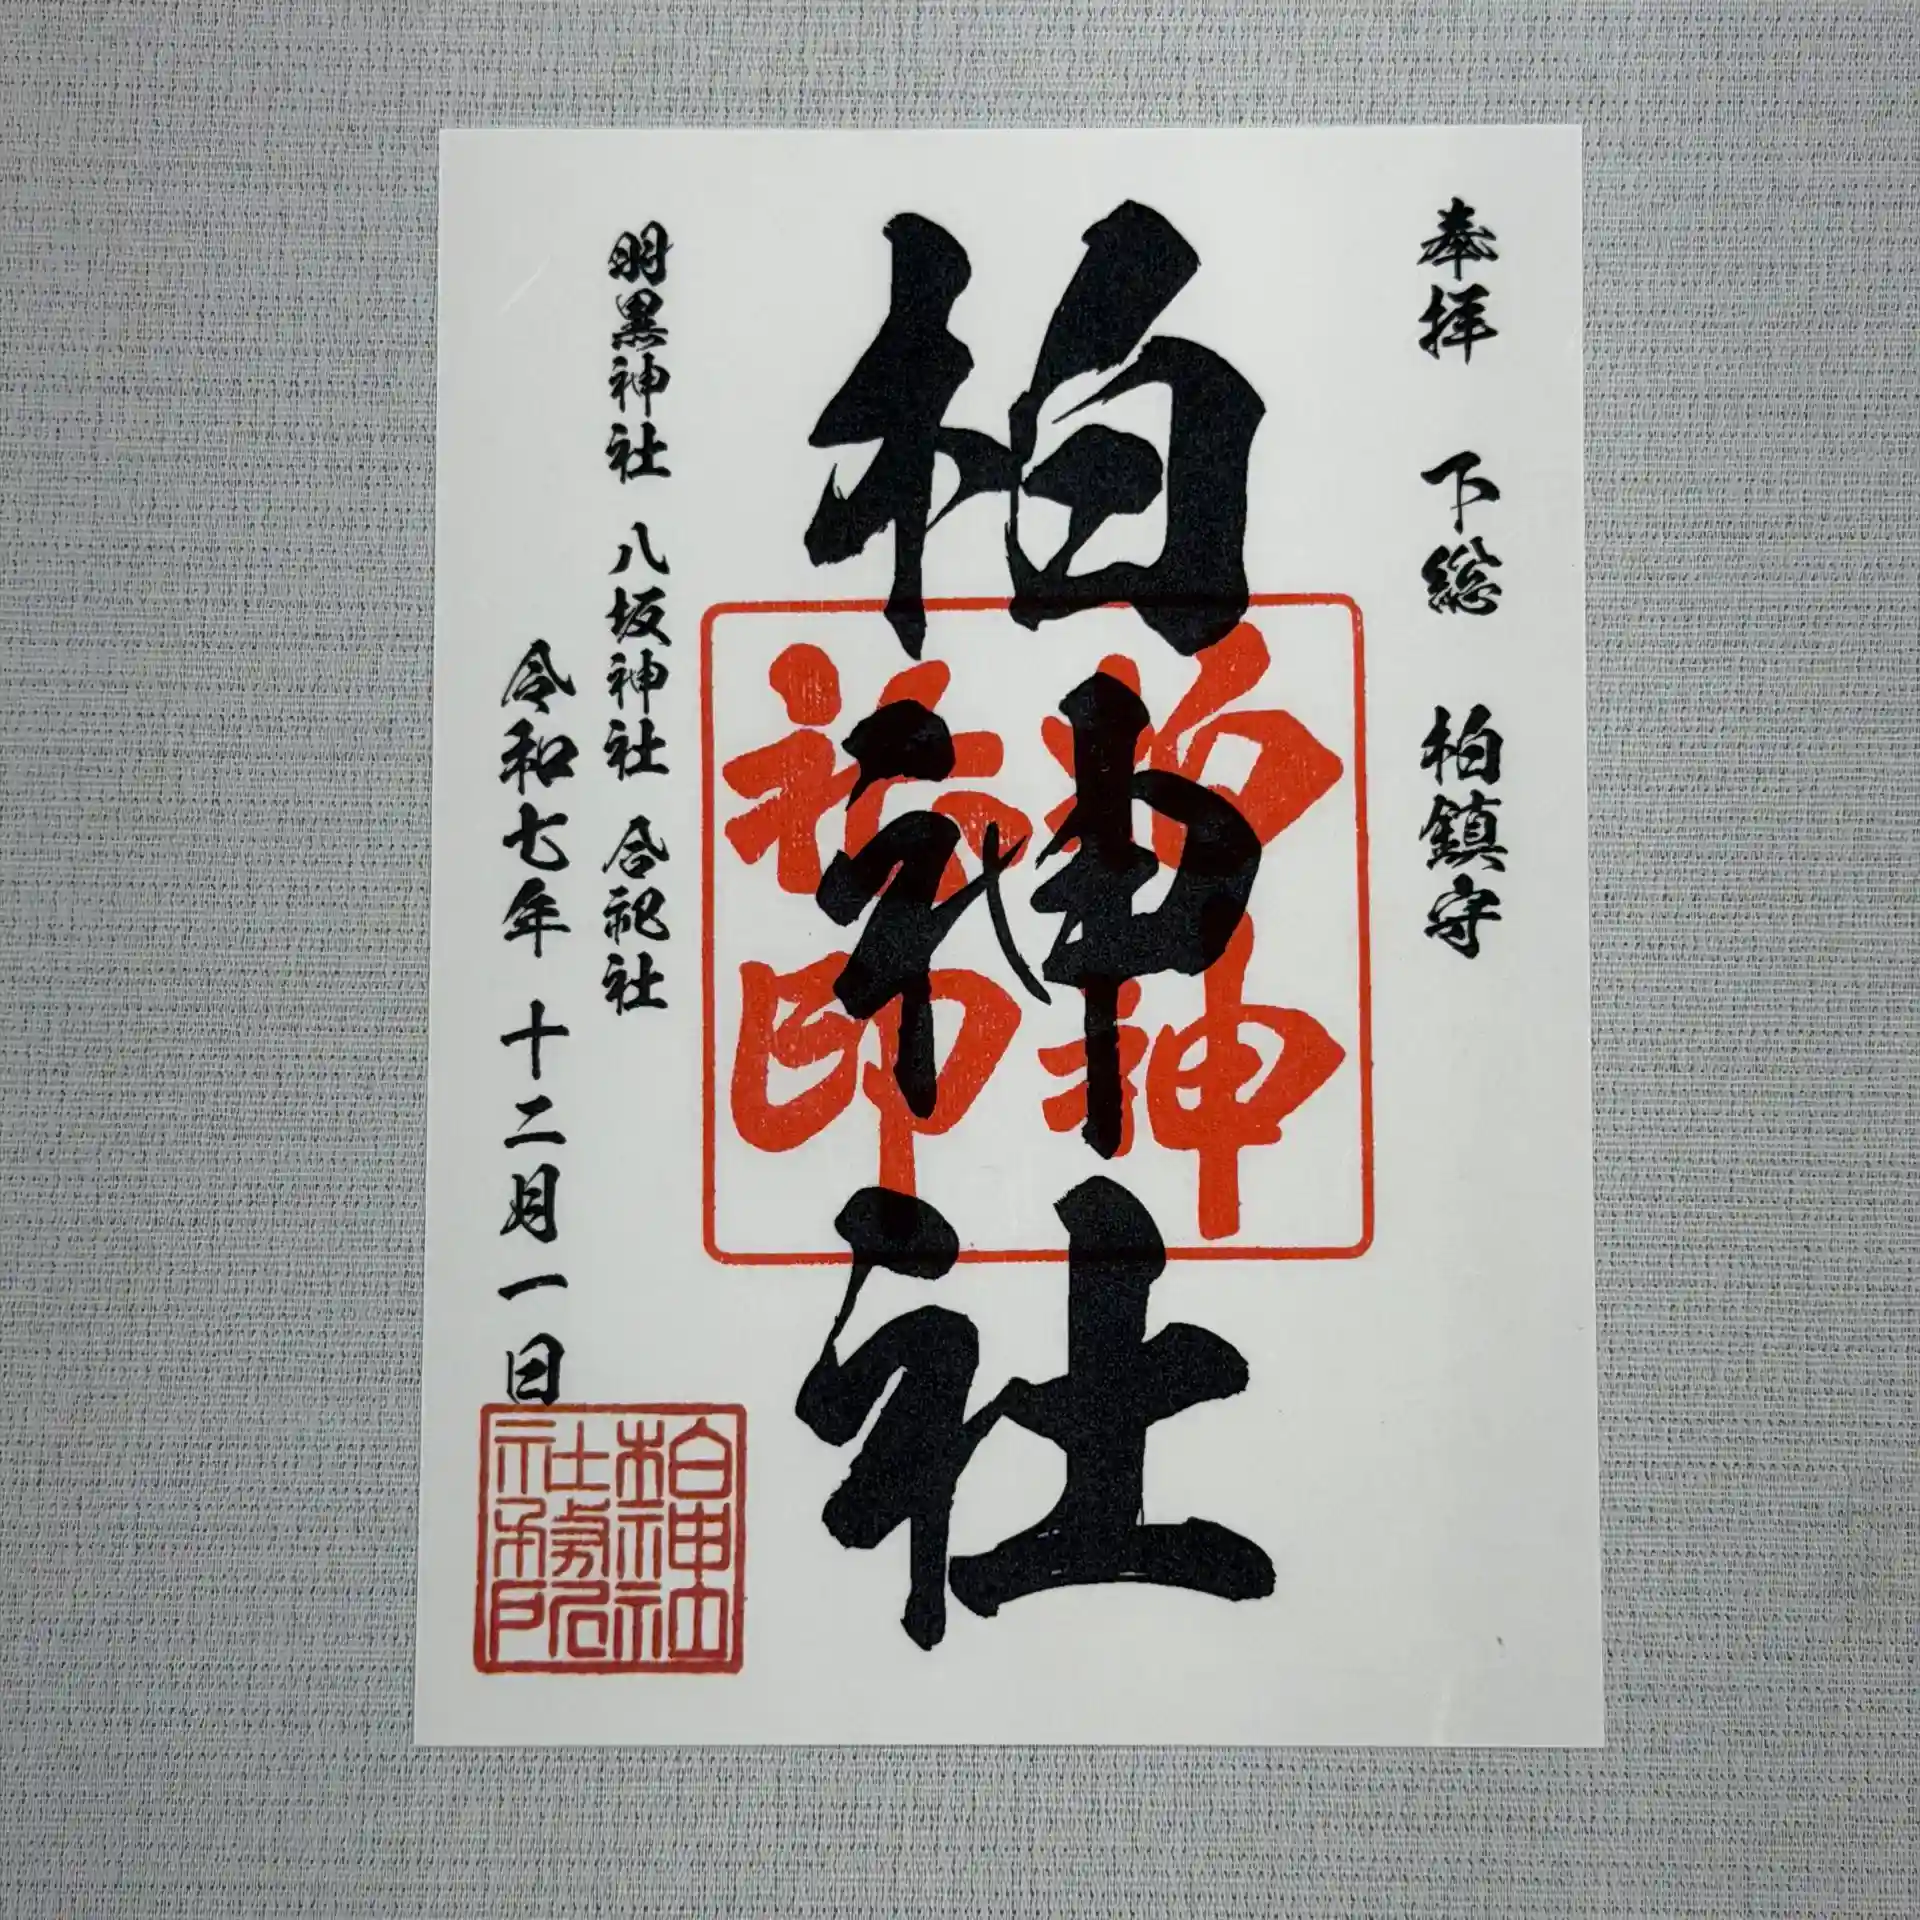 奉拝 下総 柏鎮守
柏神社
柏神
社印
羽黒神社 八坂神社 合祀社
令和七年 十二月一日
柏神社
社務所